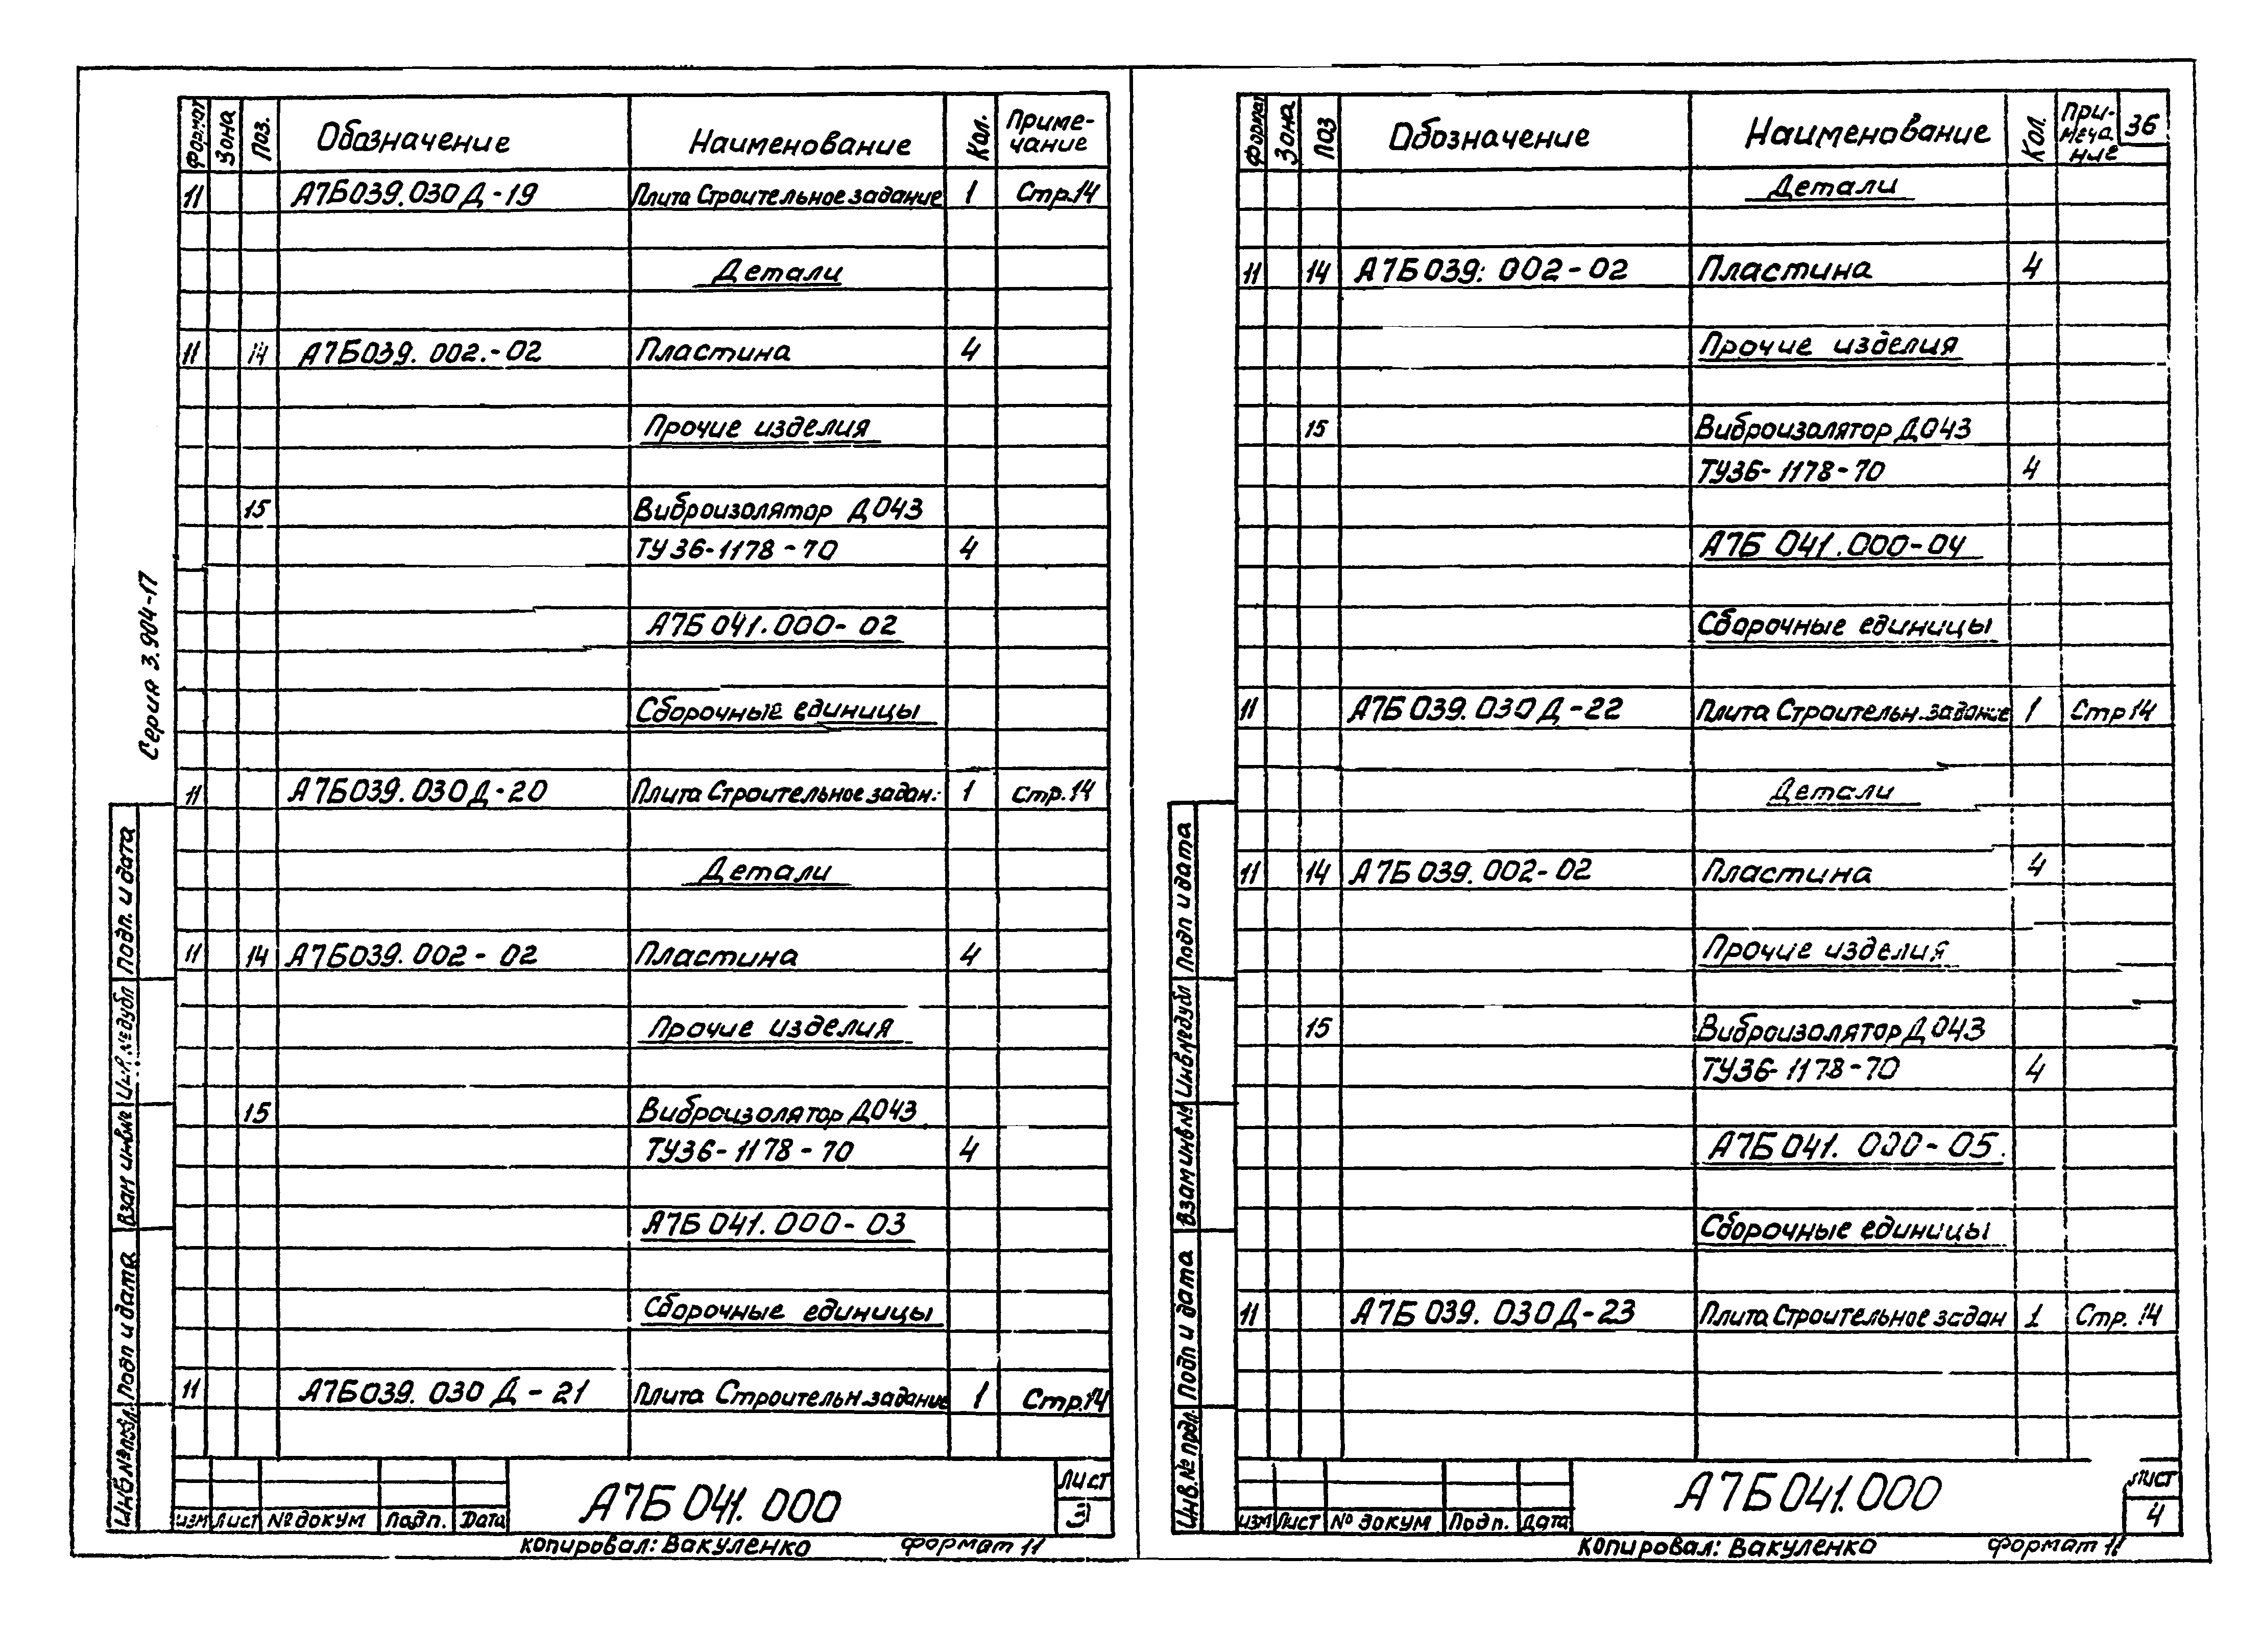 Серия 3.904-17
Формат Зона Поз. Обозначение Наименование Кол. Приме-
чание
11 А7Б039.030Д-19 Плита Строительное задание 1 Стр.14
Детали
11 14 А7Б039.002.-02 Пластина 4
Прочие изделия
15 Виброизолятор Д043
ТУ36-1178-70 4
А7Б041.000-02
Сборочные единицы
11 А7Б039.030Д-20 Плита Строительное задан. 1 Стр.14
Детали
11 14 А7Б039.002-02 Пластина 4
Прочие изделия
15 Виброизолятор Д043
ТУ36-1178-70 4
А7Б041.000-03
Сборочные единицы
11 А7Б039.030Д-21 Плита Строительн.задание 1 Стр.14
Инв№подл. Подп и дата Взам инв№ Инв.№дубл Подп. и дата
Изм Лист № докум Подп. Дата
А7Б041.000
Лист
3
Копировал: Вакуленко Формат 11
36
Формат Зона Поз Обозначение Наименование Кол. При-
меча
ние
Детали
11 14 А7Б039.002-02 Пластина 4
Прочие изделия
15 Виброизолятор Д043
ТУ36-1178-70 4
А7Б041.000-04
Сборочные единицы
11 А7Б039.030Д-22 Плита Строительн.задание 1 Стр14
Детали
11 14 А7Б039.002-02 Пластина 4
Прочие изделия
15 Виброизолятор Д043
ТУ36-1178-70 4
А7Б041.000-05.
Сборочные единицы
11 А7Б039.030Д-23 Плита Строительное задан 1 Стр.14
Инв.№ подл. Подп и дата Взам инв№ Инв№дубл Подп и дата
Изм Лист № докум Подп. Дата
А7Б041.000
Лист
4
Копировал: Вакуленко Формат 11